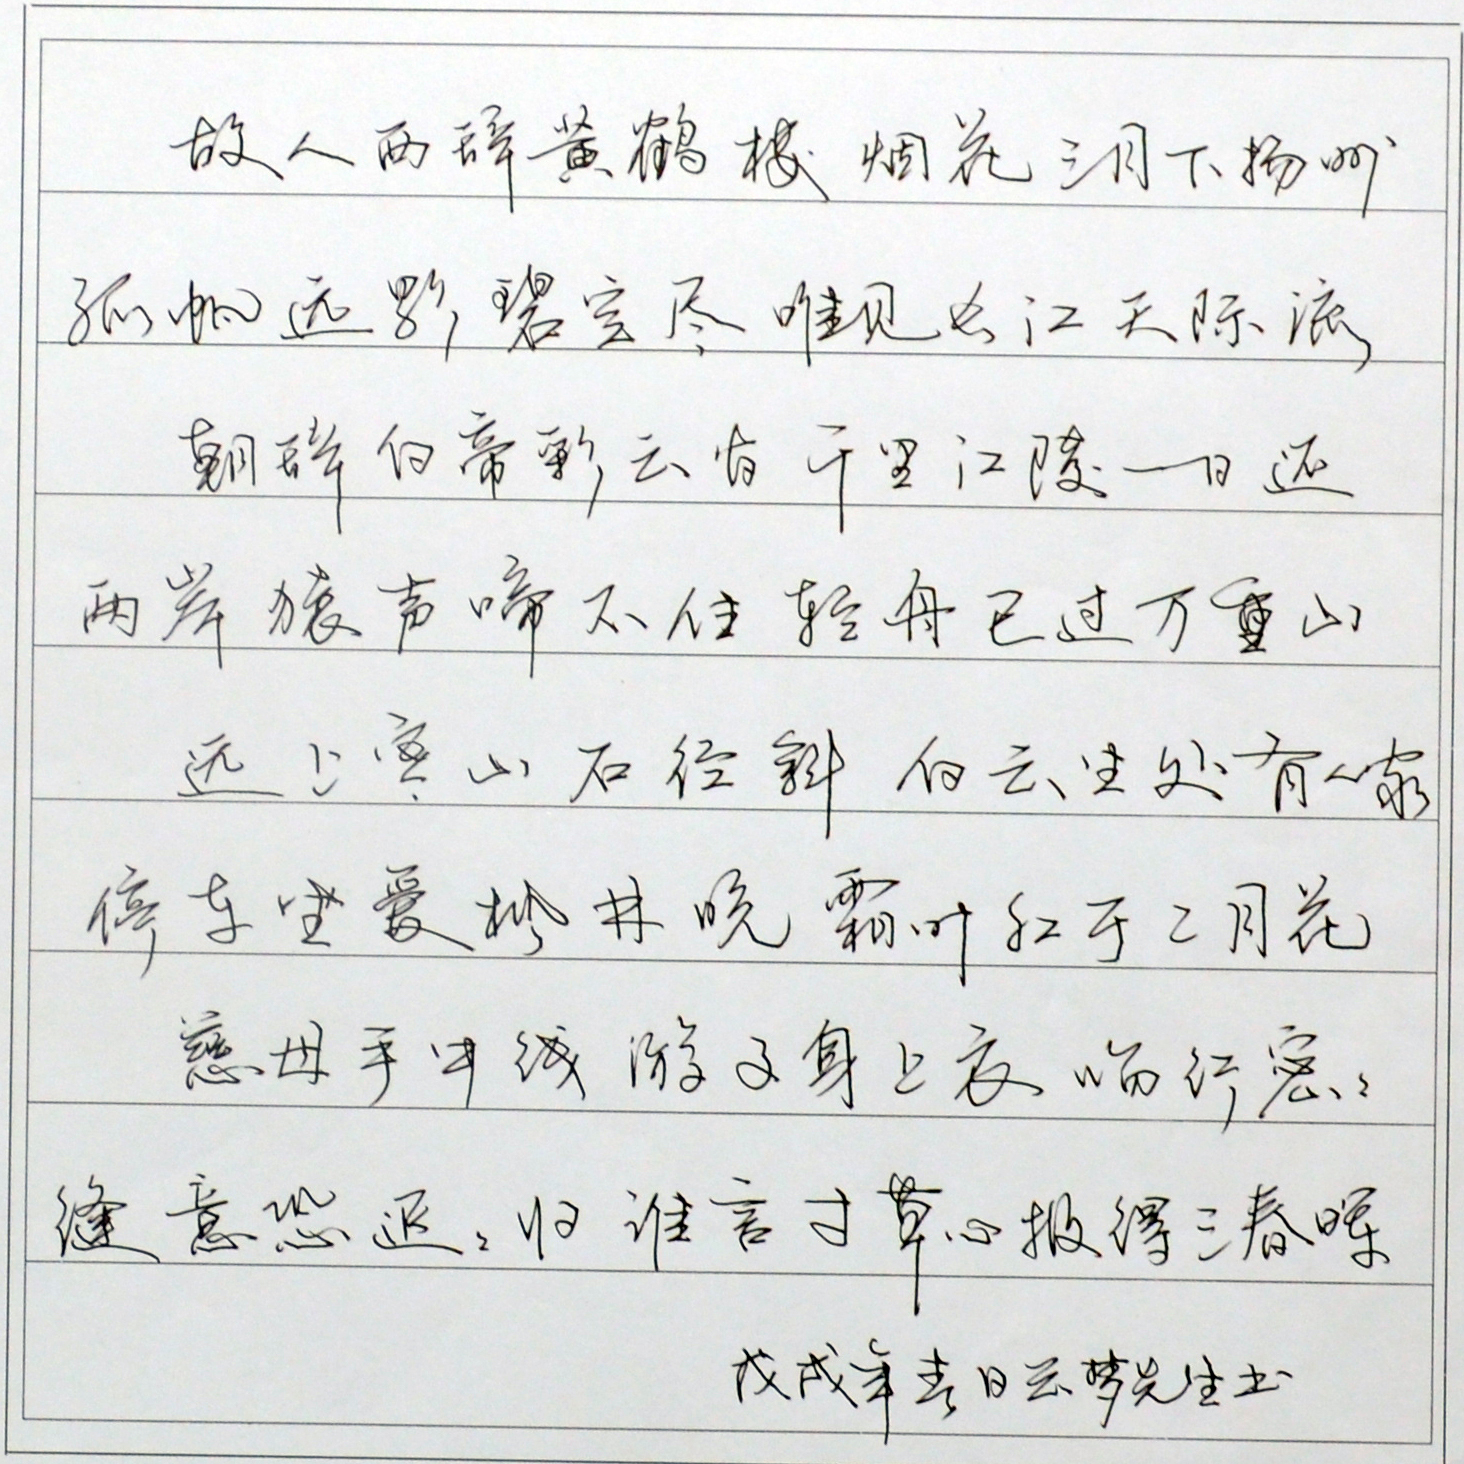 故人西辞黄鹤楼 烟花三月下扬州
孤帆远影碧空尽 唯见长江天际流
朝辞白帝彩云间 千里江陵一日还
两岸猿声啼不住 轻舟已过万重山
远上寒山石径斜 白云生处有人家
停车坐爱枫林晚 霜叶红于二月花
慈母手中线 游子身上衣 临行密密
缝 意恐迟迟归 谁言寸草心 报得三春晖
戊戌年春日云梦先生书